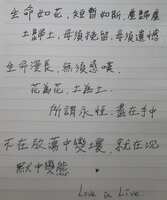 生命如花，短暫如斯，塵歸塵
土歸土，毋須挽留，毋須遺憾
生命漫長，無須感嘆
花為花，土為土，
所謂永恆，盡在手中
不在放蕩中變壞，就在沉
默中變態
Love is Live